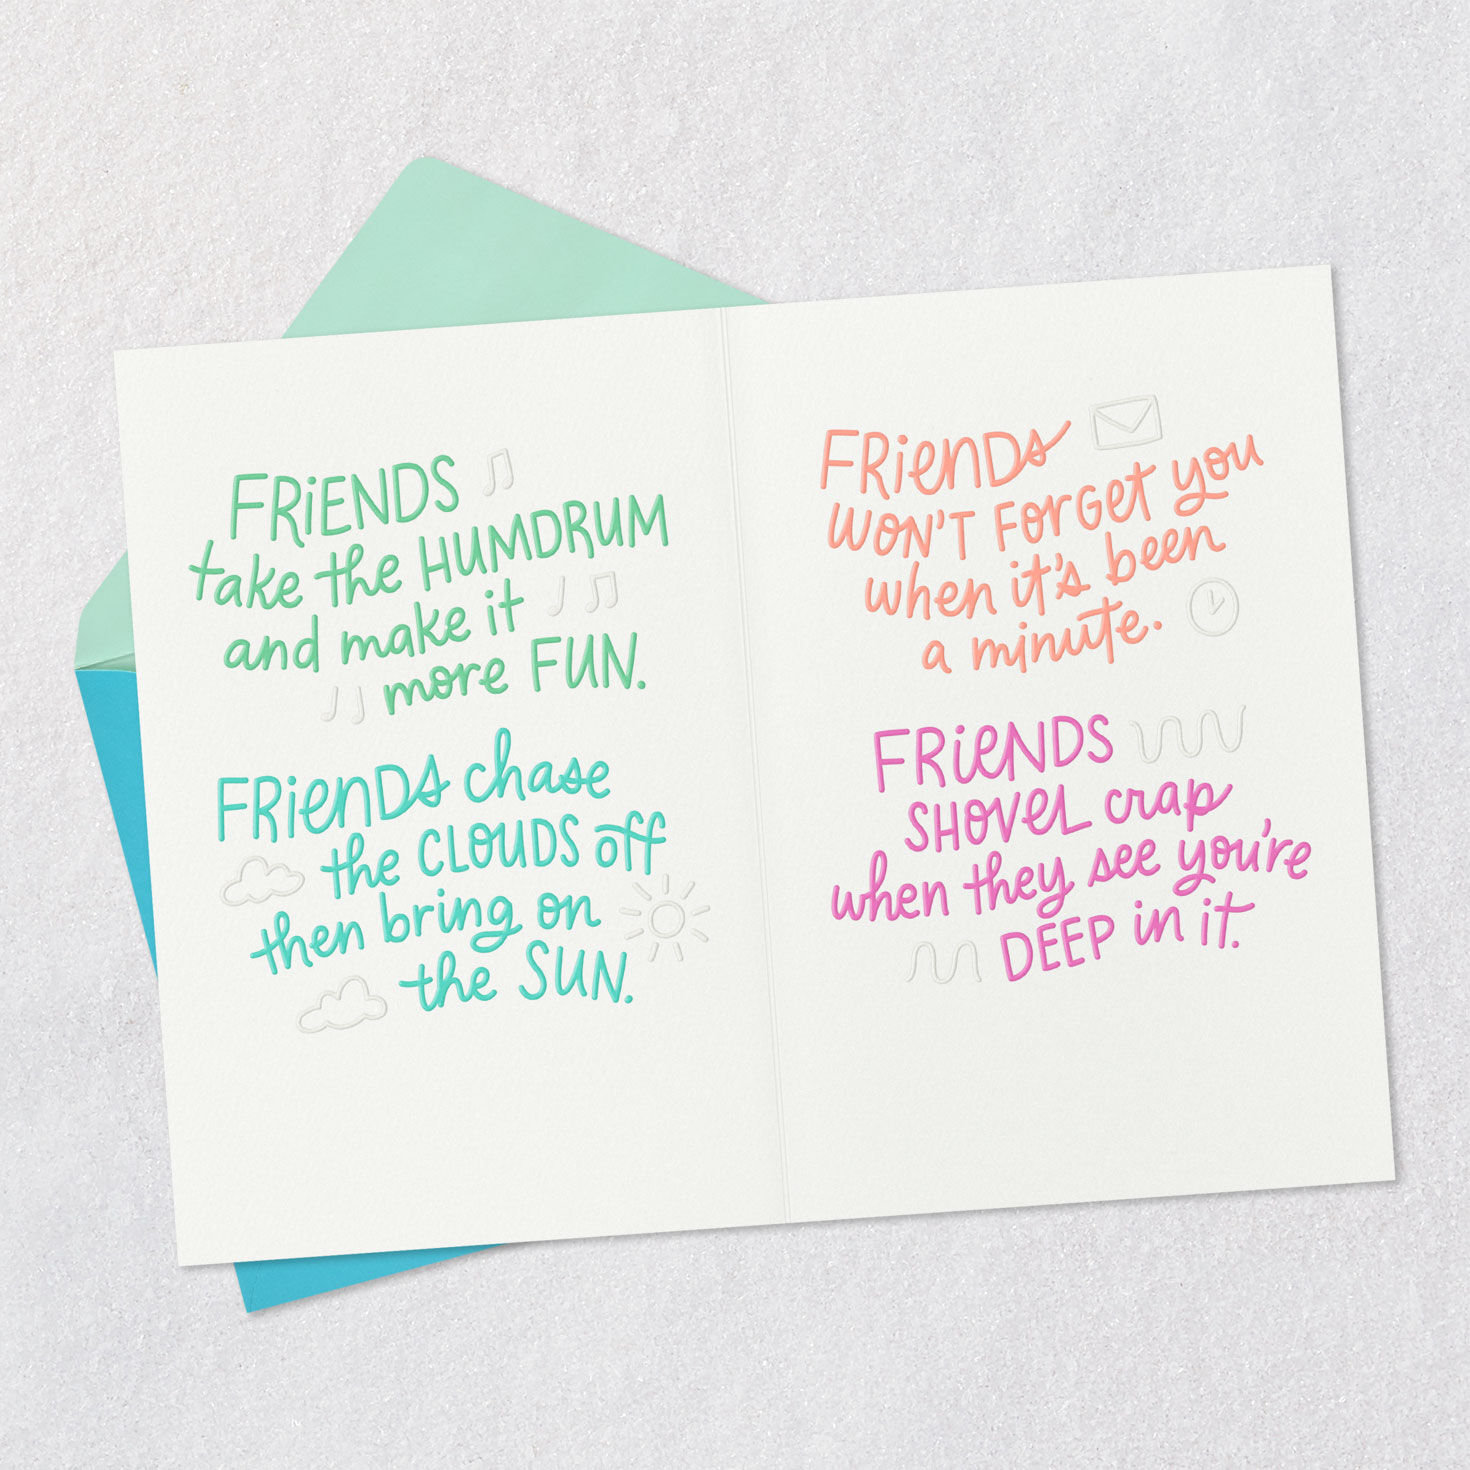 FRiENDS
take the HUMDRUM
and make it
more FUN.
FRienDs chase
the CLOUDS off
then bring on
the SUN.
FRienDs
WON'T FORGET you
when it's been
a minute.
FRieNDS
SHOVEL crap
when they see you're
DEEP in it.